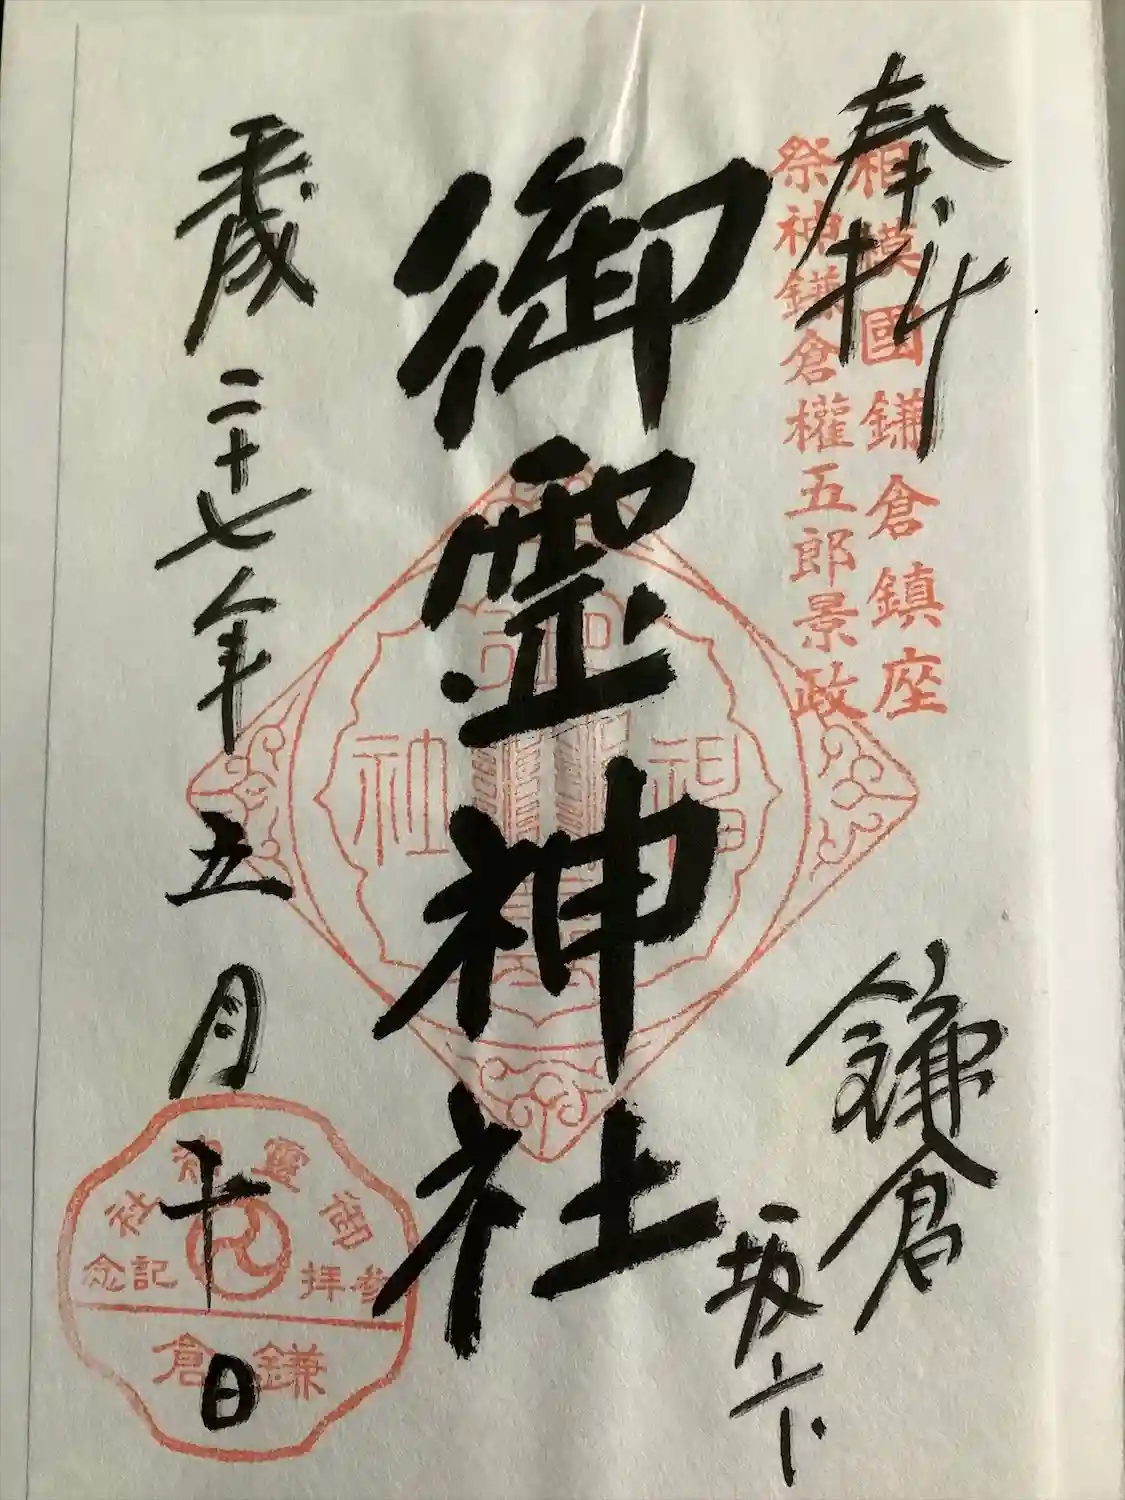 奉拝
相模國鎌倉鎮座
祭神鎌倉權五郎景政
鎌倉
坂ノ下
御霊神社
平成二十七年五月十日
神社
御靈神社
参拝記念
鎌倉